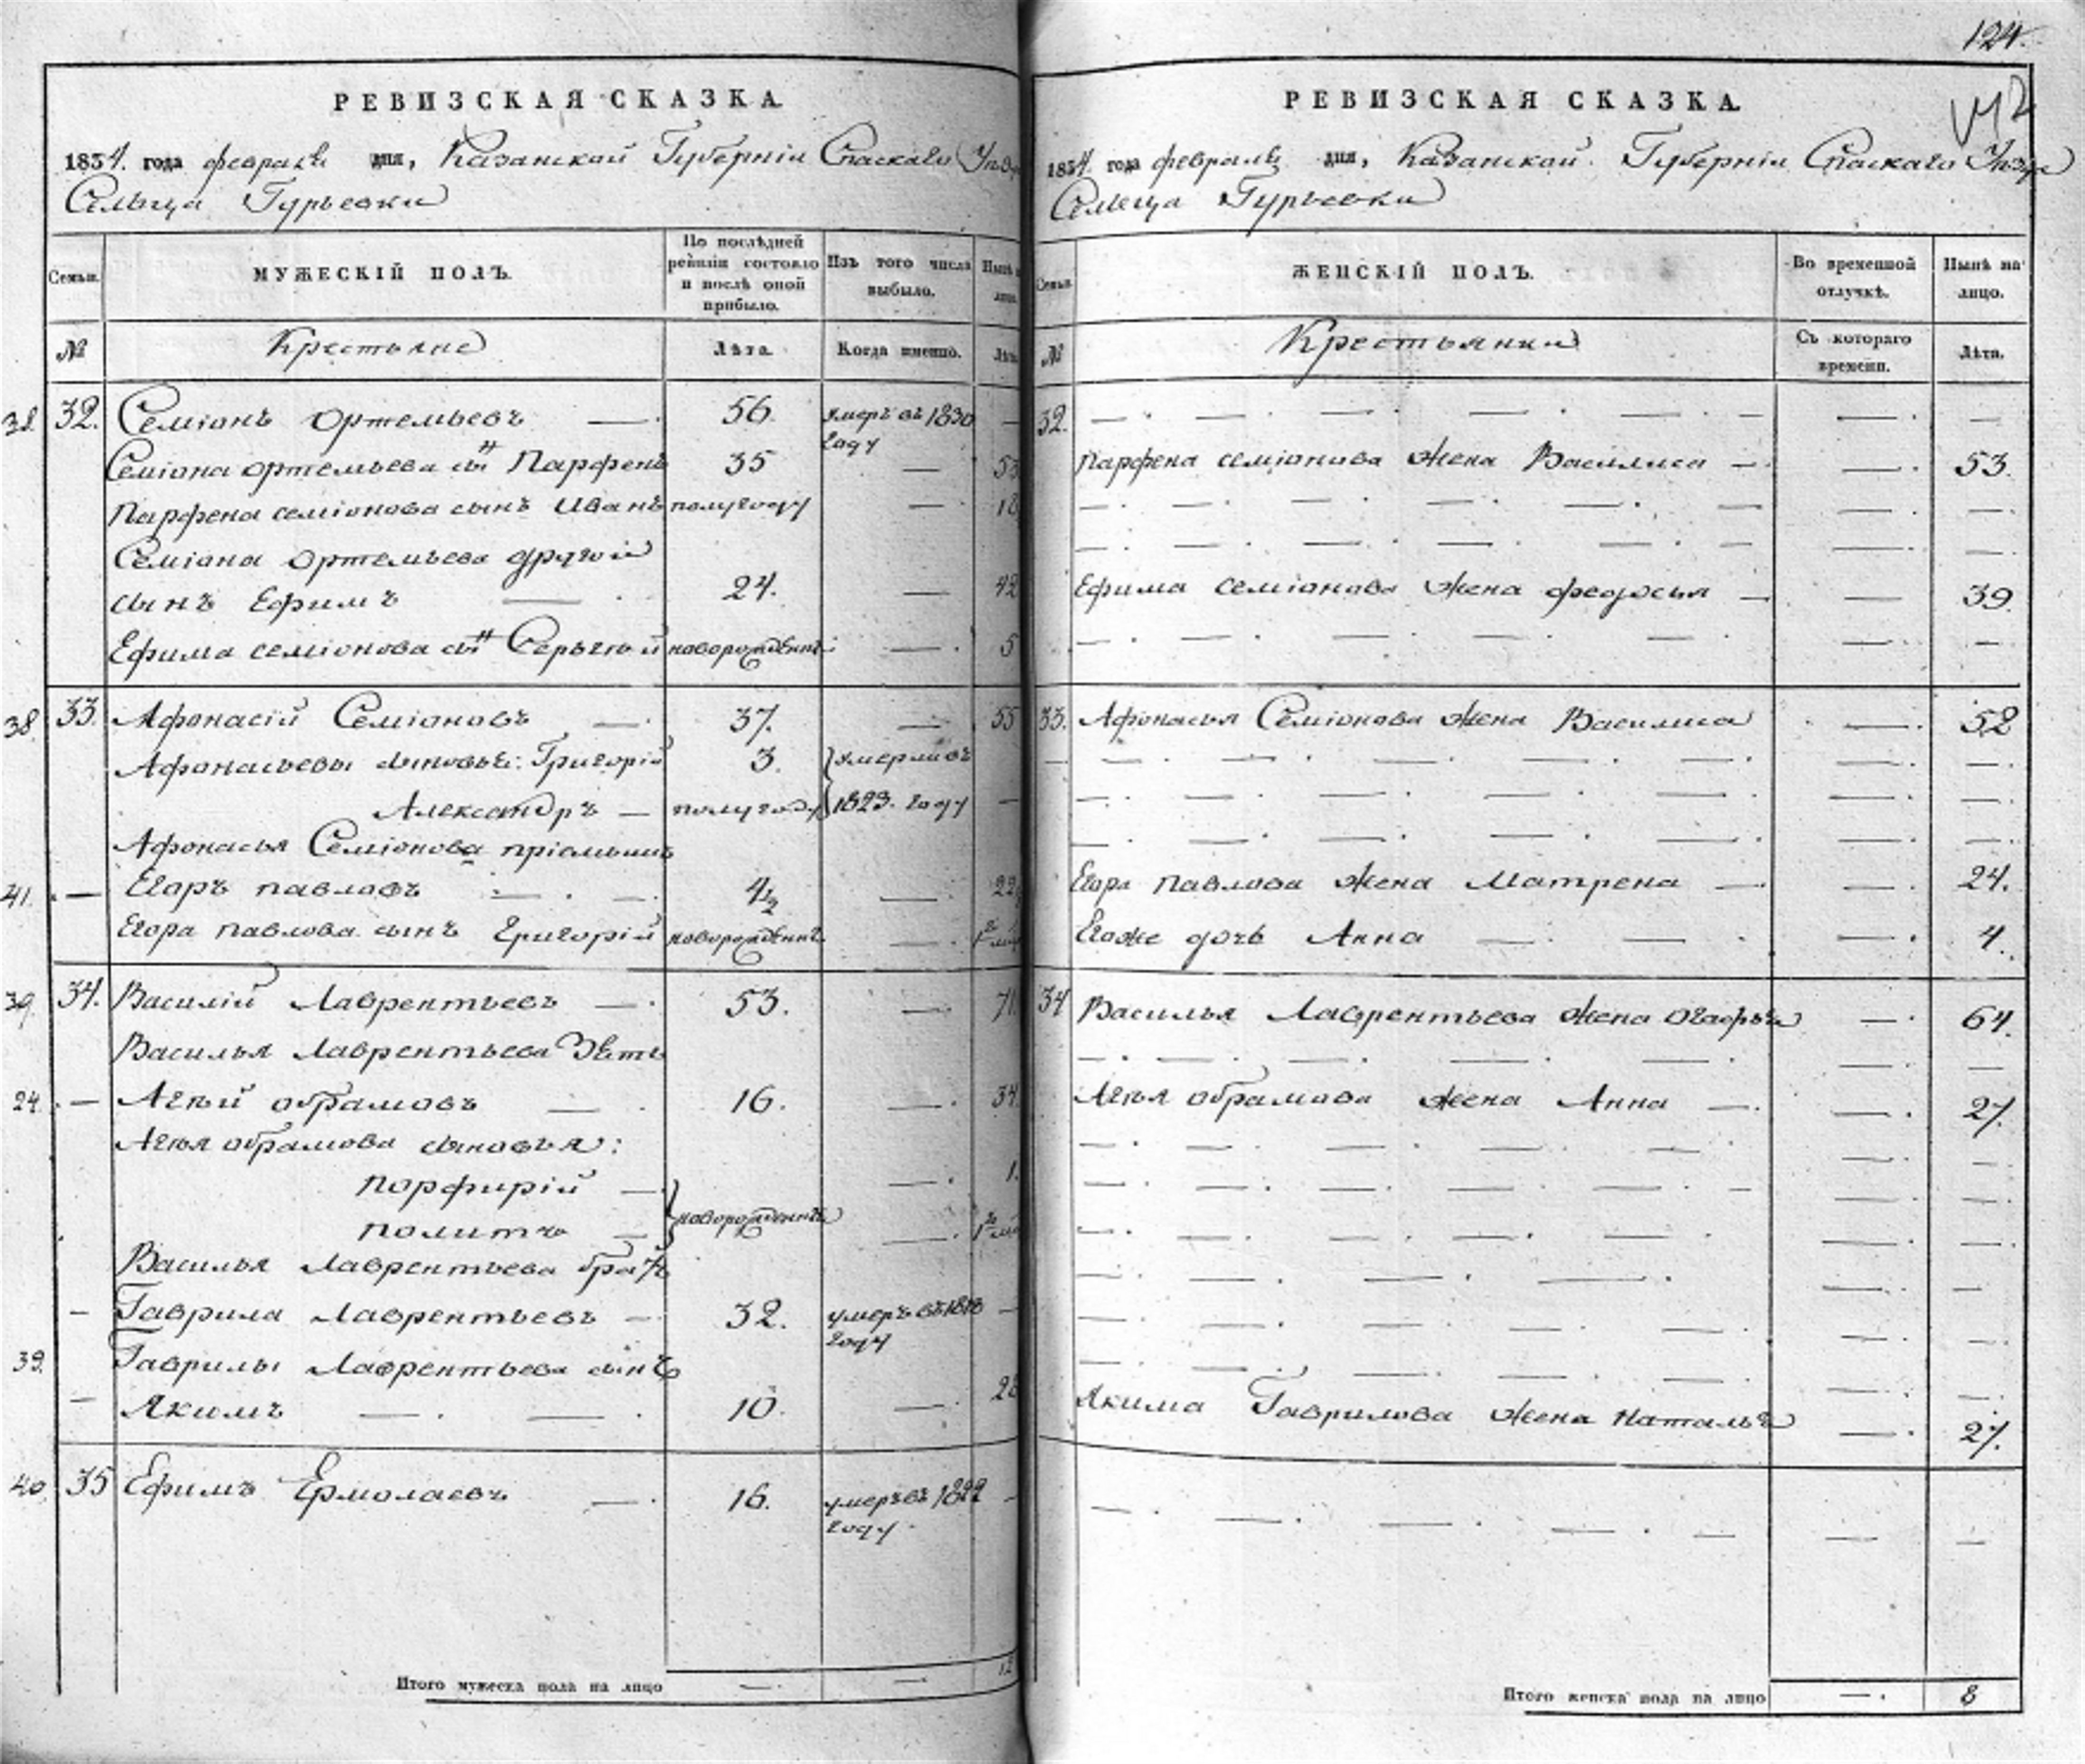 РЕВИЗСКАЯ СКАЗКА.
1834. года февраля дня, Казанской Губерніи Спаскаго Уѣзда
Сельца Гурьевки
Семьи.
МУЖЕСКІЙ ПОЛЪ.
По послѣдней ревизіи состояло и послѣ оной прибыло.
Изъ того числа выбыло.
Нынѣ
лицо.
№
Крестьяне
Лѣта.
Когда именно.
Лѣта.
38. 32. Семіонъ Ортемьевъ — 56. умеръ въ 1830 году —
Семіона ортемьева сынъ Парфенъ 35 — 53
Парфена семіонова сынъ Иванъ полугоду — 18
Семіона Ортемьева другой
сынъ Ефимъ — 24. — 42
Ефима семіонова сынъ Серьгѣй новорожденный — 5
38. 33. Афонасій Семіоновъ — 37. — 55
Афонасьевы сыновья: Григорій 3. умерли въ
Александръ — полугоду 1823. году —
Афонасья Семіонова пріемышъ
41. — Егоръ павловъ — 4½ — 22
Егора павлова сынъ Григорій новорожденный —
39. 34. Василій Лаврентьевъ — 53. — 71.
Василья Лаврентьева Зять
24. — Агѣй обрамовъ — 16. — 34.
Агѣя обрамова сыновья:
порфирій — новорожденные — 1.
политъ — —
Василья Лаврентьева братъ
— Гаврила Лаврентьевъ — 32. умеръ въ 1818 году —
39. Гаврилы Лаврентьева сынъ
— Якимъ — 10. — 28
40. 35 Ефимъ Ермолаевъ — 16. умеръ въ 1822 году. —
Итого мужеска пола на лицо — — 12
124.
РЕВИЗСКАЯ СКАЗКА.
1834. года февраля дня, Казанской Губерніи Спаскаго Уѣзда
Сельца Гурьевки
Семьи.
ЖЕНСКІЙ ПОЛЪ.
Во временной отлучкѣ.
Нынѣ на лицо.
№
Крестьянки
Съ котораго времени.
Лѣта.
32. — — —
Парфена семіонова жена Василиса — — 53.
Ефима семіонова жена федосья — — 39
33. Афонасья Семіонова жена Василиса — 52
Егора Павлова жена Матрена — — 24.
Егоже дочь Анна — — 4.
34 Василья Лаврентьева жена огафья — 64.
Агѣя обрамова жена Анна — — 27.
Якима Гаврилова жена наталья — 27.
Итого женска пола на лицо — 8